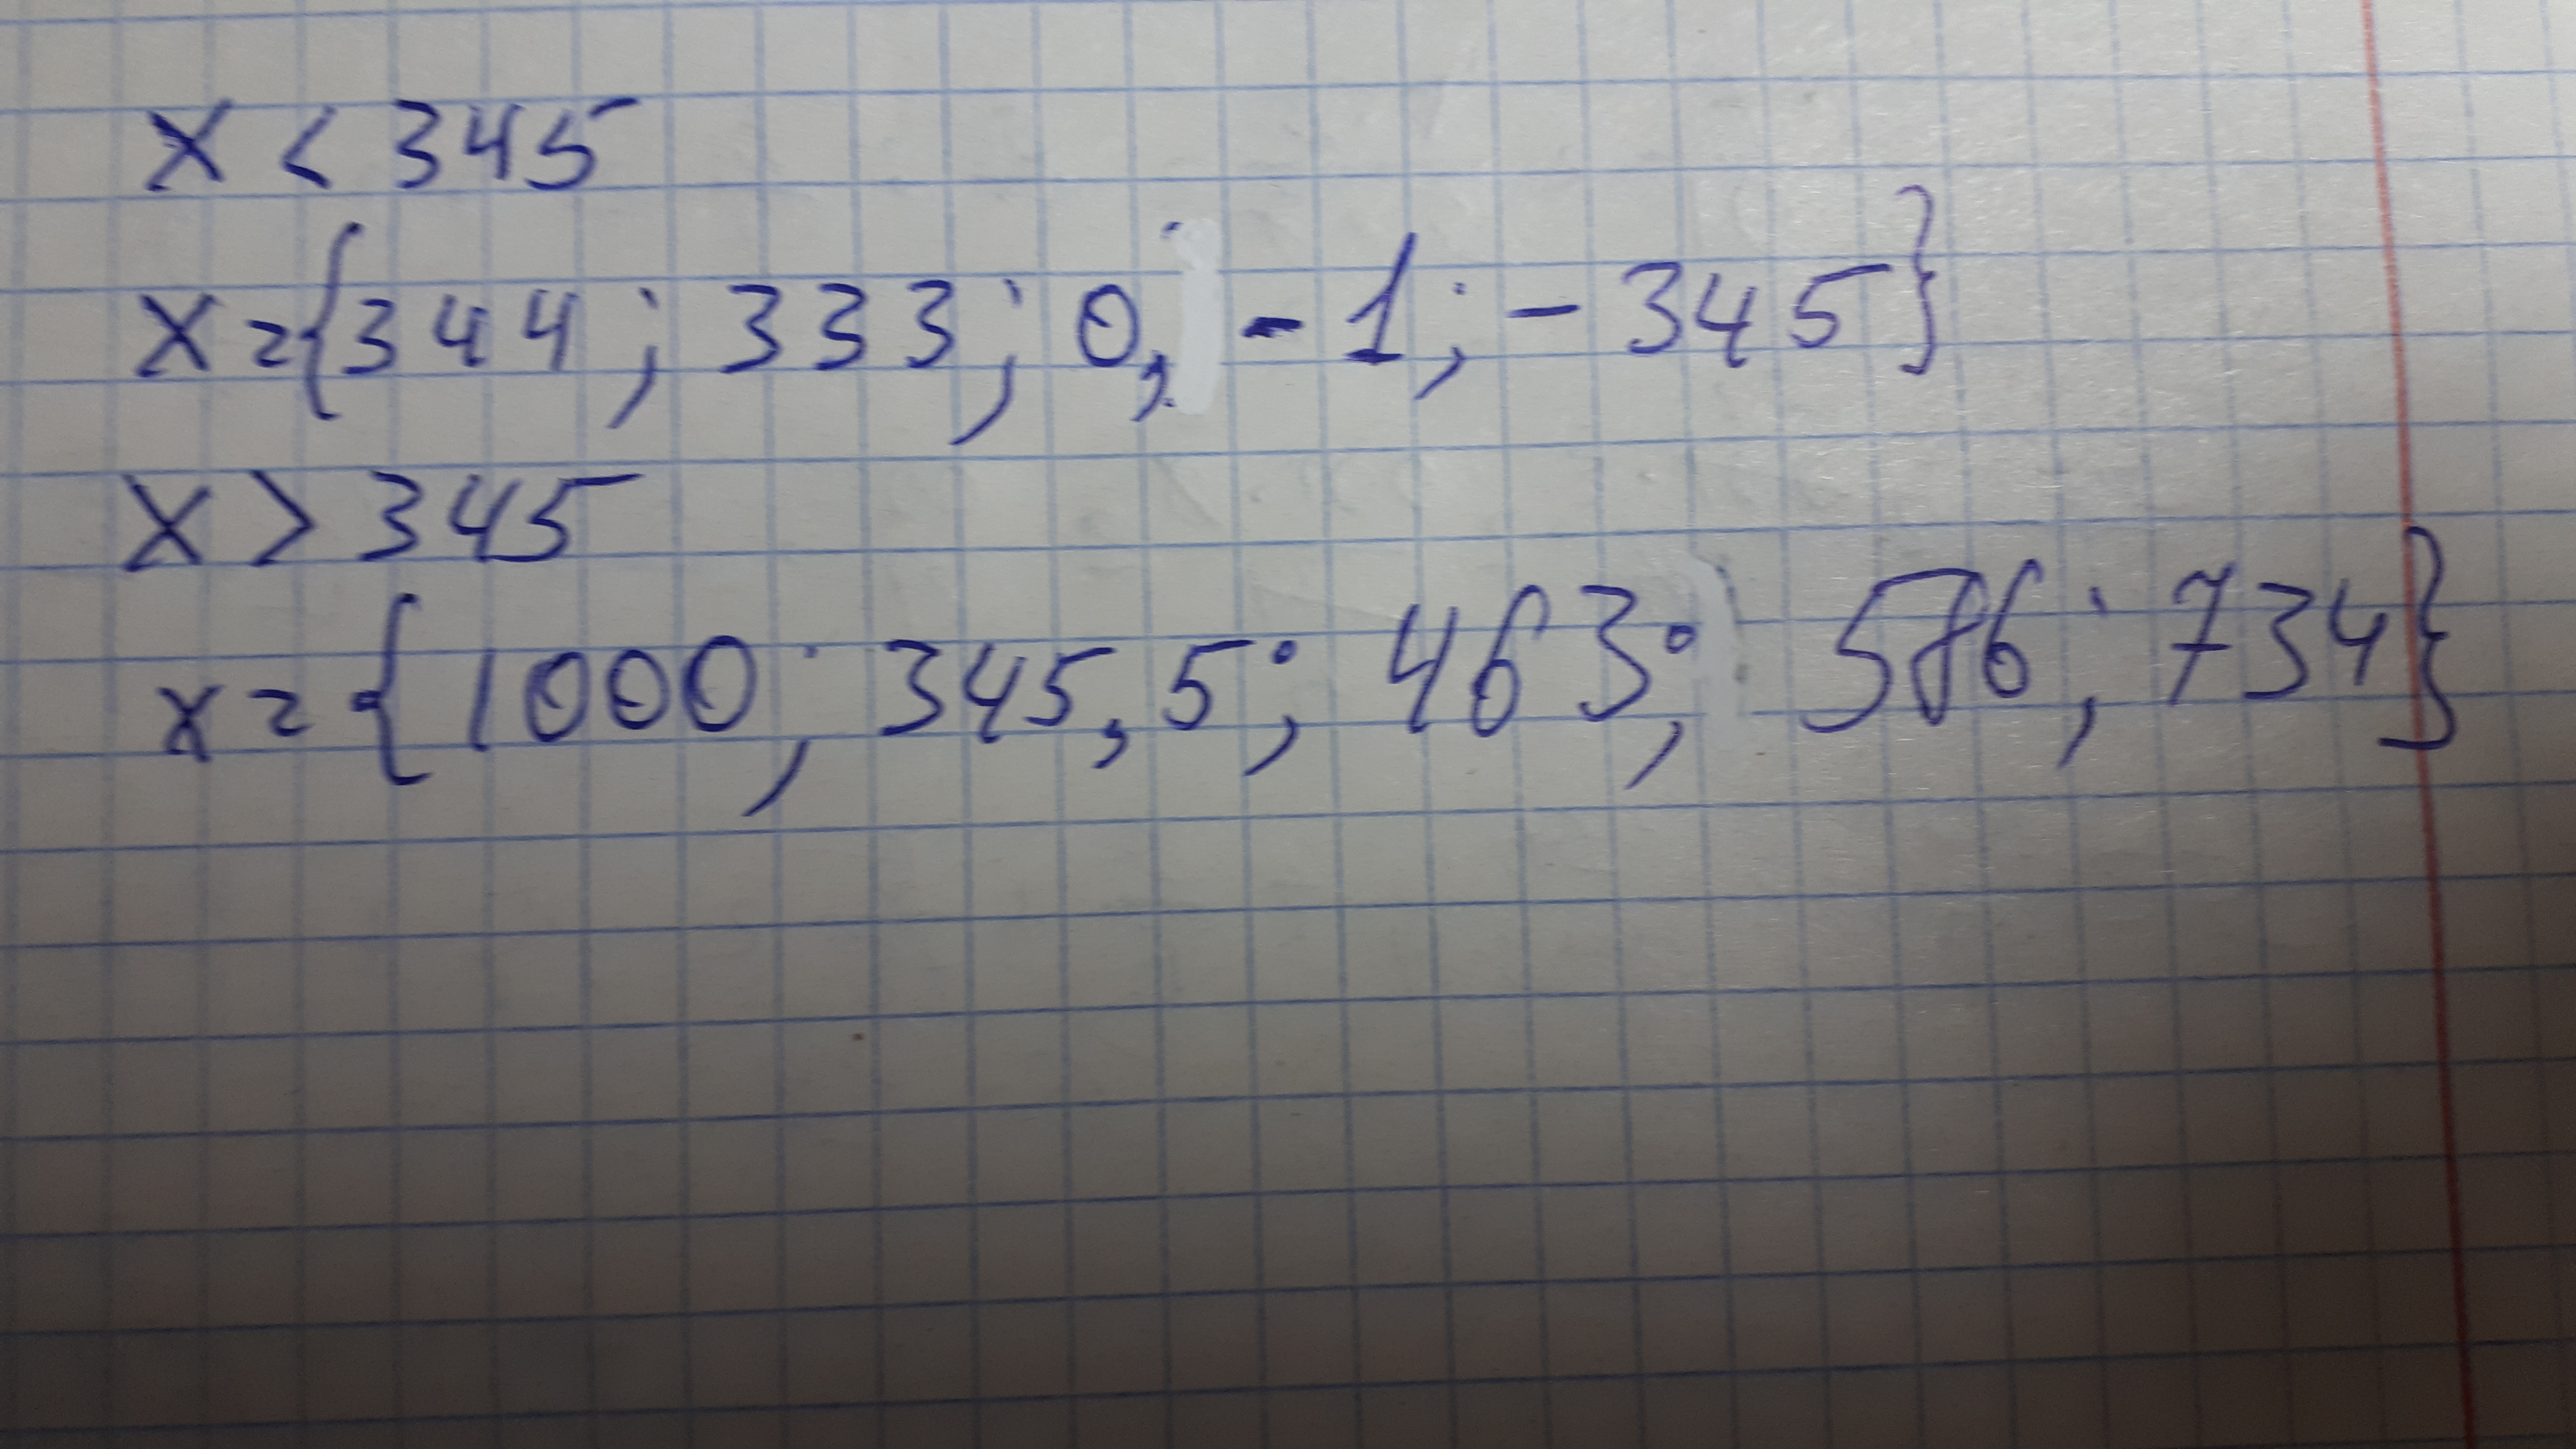 x < 345
x = {344; 333; 0; -1; -345}
x > 345
x = {1000; 345,5; 463; 586; 734}